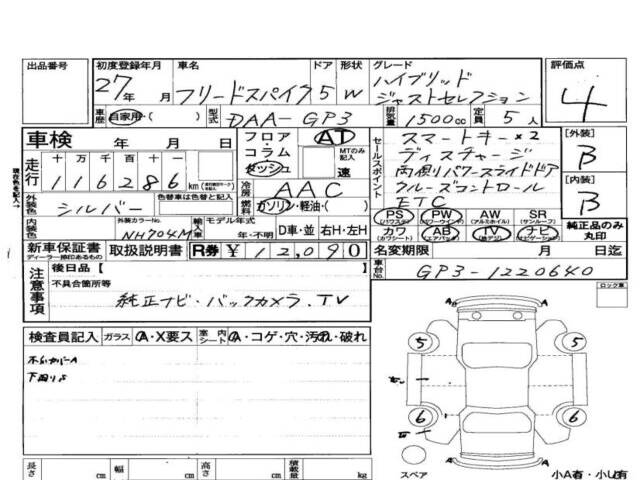 出品番号 初度登録年月 車名 ドア 形状 グレード 評価点
27年 月 フリードスパイク 5 W ハイブリッド ジャストセレクション 4
車歴 自家用・( ) 型式 DAA-GP3 排気量 1500cc 定員 5人
車検 年 月 日 フロア・コラム・ダッシュ AT MTのみ記入 速
走行 十 万 千 百 十 一
116286 km
外装色 シルバー 色替車は色替と記入
冷房 AAC
燃料 ガソリン・軽油・( )
内装色 外装カラーNo. NH704M 輸入車 モデル年式 年・不明 D車・並 右H・左H
セールスポイント
スマートキー×2
ディスチャージ
両側パワースライドドア
クルーズコントロール
ETC
PS PW AW SR
(パワステ) (パワーウインド) (アルミホイル) (サンルーフ)
カワ AB TV ナビ
(カワシート) (エアバック) (ナビゲーション)
純正品のみ丸印
[外装] B
[内装] B
新車保証書 取扱説明書 R券 ¥12,090 名変期限 月 日迄
ディーラー捺印あるもの
注意事項 後日品 [ ] 車台No. GP3-1220640
不具合箇所等
純正ナビ・バックカメラ・TV
ロック車
検査員記入 ガラス A・X要ス 室内シート A・コゲ・穴・汚れ・破れ
5 5
6 6
スペア 小A有・小U有
長さ cm 幅 cm 高さ cm 積載量 kg